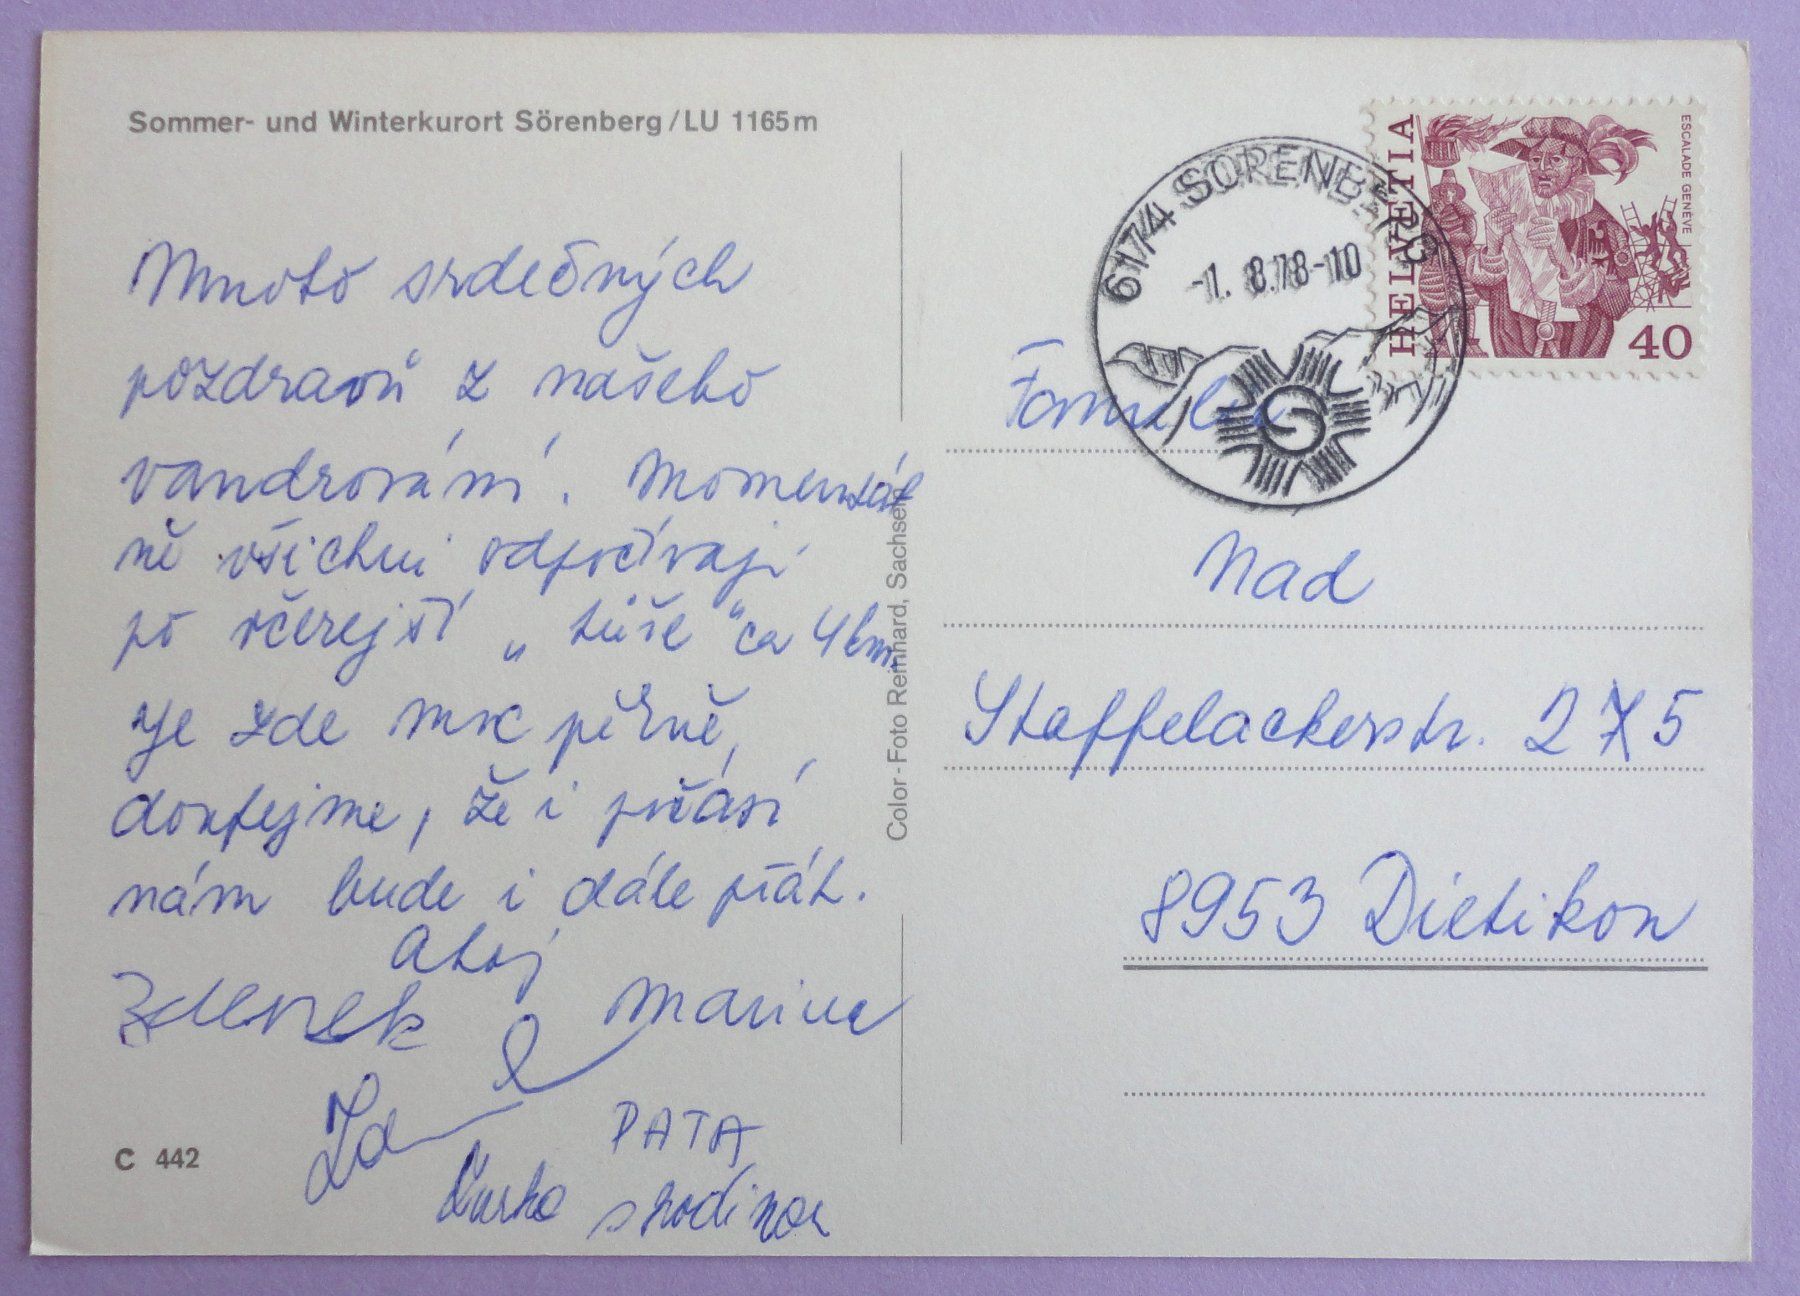 Sommer- und Winterkurort Sörenberg/LU 1165m
Mnoho srdečných
pozdravů z našeho
vandrování. Momentál
ně všichni odpočívají
po včerejší „ túře “ ca 4 km.
Je zde moc pěkně,
doufejme, že i počasí
nám bude i dále přát.
Ahoj
Zdenek Marine
PATA
s rodinou
C 442
Color-Foto Reinhard, Sachseln
6174 SÖRENBERG
-1. 8.78-10
HELVETIA
ESCALADE GENÈVE
40
Familie
Nad
Staffelackerstr. 275
8953 Dietikon